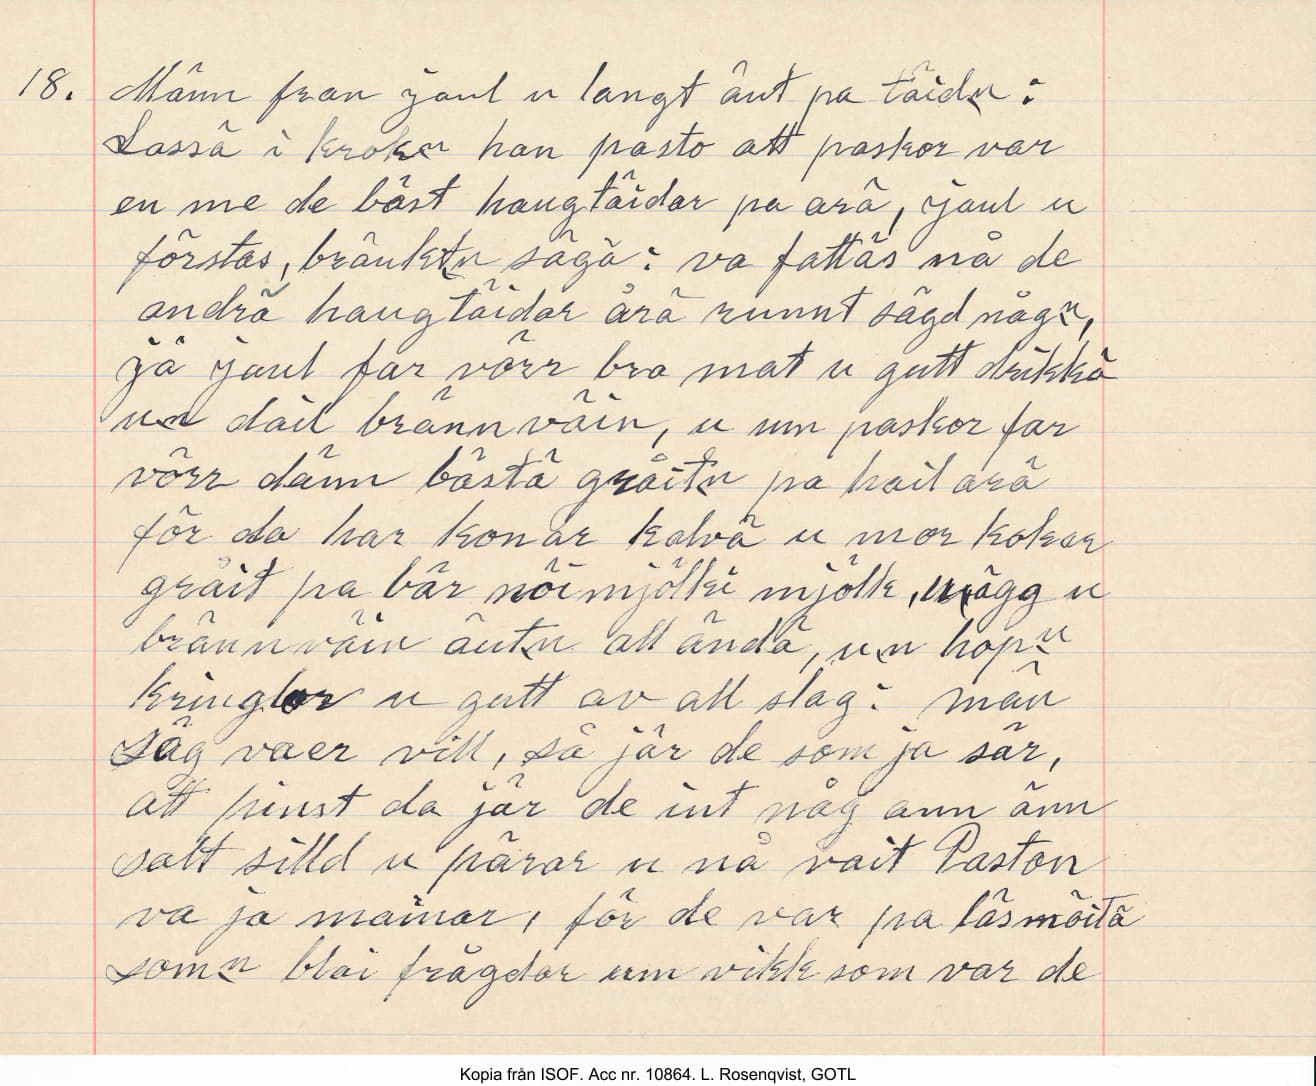 18. Männ fran jaul u langt äut pa täidn:
Lassä i krokn han pasto att paskor var
en me de bäst haugtäidar pa arä, jaul u
förstas, bräuktn sägä: va fattäs nå de
andrä haugtäidar årä runnt sägd någn,
jä jaul far vörr bra mat u gutt drikkä
un dail brännväin, u um paskor far
vörr dänn bästä gräitn pa hail arä
för da har konar kalvä u mor kokar
gräit pa bär nöimjölki mjölk, u ägg u
brännväin äutn all ändä, un hopn
kringlor u gutt av all slag: män
säg vaer vill, så jär de som ja sär,
att pinst da jär de int någ ann änn
salt silld u pärar u nå vait Paston
va ja mainar, för de var pa läsmöitä
somn blai frågdar um vikk som var de
Kopia från ISOF. Acc nr. 10864. L. Rosenqvist, GOTL